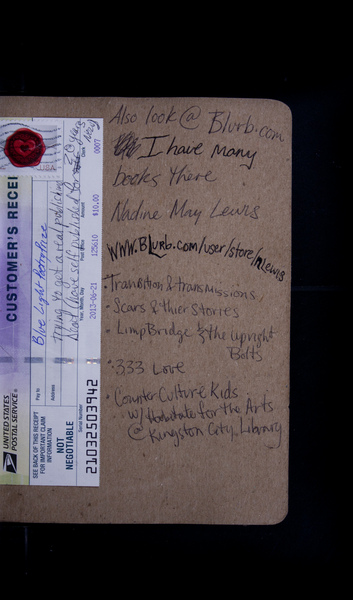 Also look @ Blurb.com
I have many
books there
Nadine May Lewis
www.Blurb.com/user/store/nlewis
· Transition & transmissions,
· Scars & thier Stories
· Limp Bridge & the Upright
Bolts
· 333 Love
· Counter Culture Kids
w/ for the Arts
@ Kingston City Library
CUSTOMER'S RECEI
UNITED STATES
POSTAL SERVICE®
SEE BACK OF THIS RECEIPT
FOR IMPORTANT CLAIM
INFORMATION
NOT
NEGOTIABLE
Pay to
Blue Light
Address
trying to get a real publishing
Serial Number
21032503942
Year, Month, Day
2013-06-21
Post Office
125610
Amount
$10.00
0007